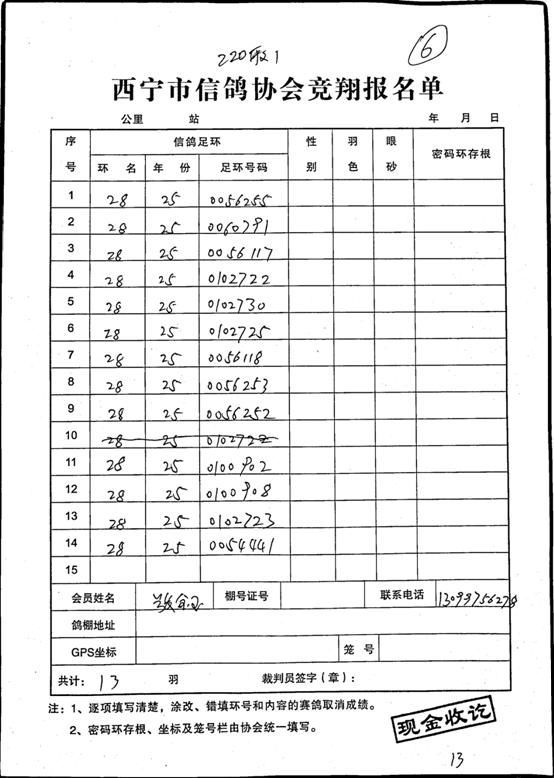 220 1
6
西宁市信鸽协会竞翔报名单
公里 站 年 月 日
序号 信鸽足环 性别 羽色 眼砂 密码环存根
环 名 年 份 足环号码
1 28 25 0056255
2 28 25 0060791
3 28 25 0056117
4 28 25 0102722
5 28 25 0102730
6 28 25 0102725
7 28 25 0056118
8 28 25 0056253
9 28 25 0056252
10 28 25 0102722
11 28 25 0100902
12 28 25 0100908
13 28 25 0102723
14 28 25 0054441
15
会员姓名 棚号证号 联系电话 13099756278
鸽棚地址
GPS坐标 笼 号
共计： 13 羽 裁判员签字（章）：
注：1、逐项填写清楚，涂改、错填环号和内容的赛鸽取消成绩。
2、密码环存根、坐标及笼号栏由协会统一填写。
现金收讫
13